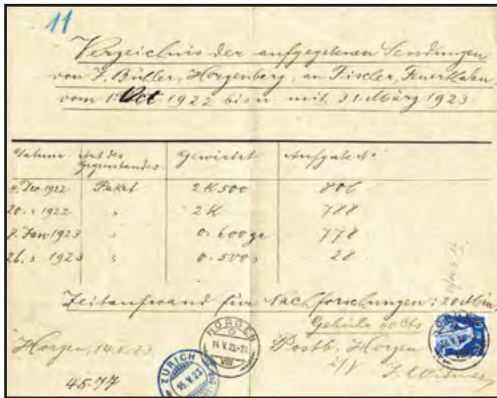 11
Verzeichnis der aufgegebenen Sendungen
von J. Büller, Horgenberg, an Fischer,
vom 1. Oct 1922 bis u. mit 31. März 1923.
Datum Art des Gegenstandes. Gewicht Aufgabe No
9. Dez 1922 Paket 2 K 500 806
20. " 1922 " 2 K 788
8. Jan 1923 " 0. 600 gr 778
26. " 1923 " 0. 500 " 28
Zeitaufwand für Nachforschungen: 20 Min.
Gebühr 40 Cts
Horgen, 14.V.23. Postb. Horgen
HORGEN
14.V.23
VIII
ZÜRICH
15.V.23
4577